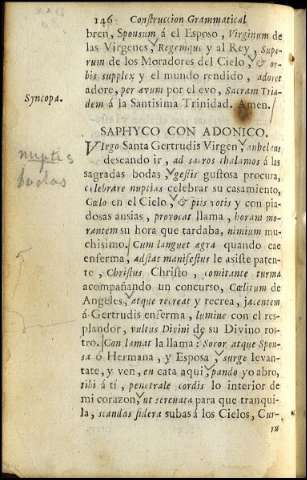 146 Construccion Grammatical
bren, Sponsum á el Esposo, Virginum de
las Virgenes, Regemque y al Rey, Supe-
rum de los Moradores del Cielo, & or-
bis supplex y el mundo rendido, adoret
adore, per ævum por el evo, Sacram Tria-
Syncopa.
dem á la Santisima Trinidad. Amen.
SAPHYCO CON ADONICO.
Virgo Santa Gertrudis Virgen, anhelans
deseando ir, ad sacros thalamos á las
nuptis
sagradas bodas, gestis gustosa procura,
bodas
celebrare nuptias celebrar su casamiento,
Cælo en el Cielo, & piis votis y con pia-
dosas ansias, provocat llama, horam mo-
rantem su hora que tardaba, nimium mu-
chisimo. Cum languet ægra quando cae
enferma, adstat manifestus le asiste paten-
te, Christus Christo, comitante turma
acompañando un concurso, Cælitum de
Angeles, atque recreat y recrea, jacentem
á Gertrudis enferma, lumine con el res-
plandor, vultus Divini de su Divino ros-
tro. Con lamat la llama: Soror atque Spon-
sa ó Hermana, y Esposa, surge levan-
tate, y ven, en cata aqui, pando yo abro,
tibi á tí, penetrale cordis lo interior de
mi corazon, ut serenata para que tranqui-
la, scandas sidera subas á los Cielos, Cur-
in